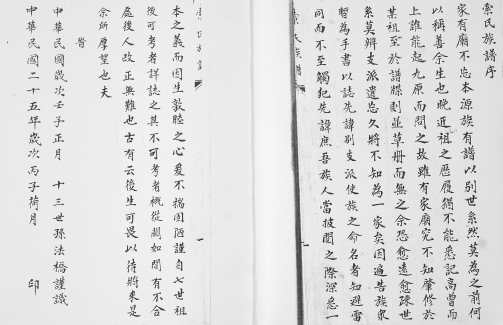 索氏族譜序
家有廟不忘本源族有譜以別世系然莫為之前何
以稱善余生也晚近祖之歷履猶不能悉記高曾而
上誰能起九原而問之故雖有家廟究不知肇修於
某祖至於譜牒則並草冊而無之余恐愈遠愈疎世
系莫辨支派遺忘久將不知為一家矣因遍告族眾
暫為手書以誌先諱別支派使族之命名者知避雷
同而不至觸犯先諱庶吾族人當披閱之際深悉一
本之義而因生敦睦之心爰不揣固陋謹自七世祖
後可考者詳誌之其不可考者概從闕如間有不合
處後人改正無難也古有云後生可畏以待將來是
余所厚望也夫
旹
中華民國歲次壬子正月 十三世孫法橋謹識
中華民國二十五年歲次丙子荷月 印